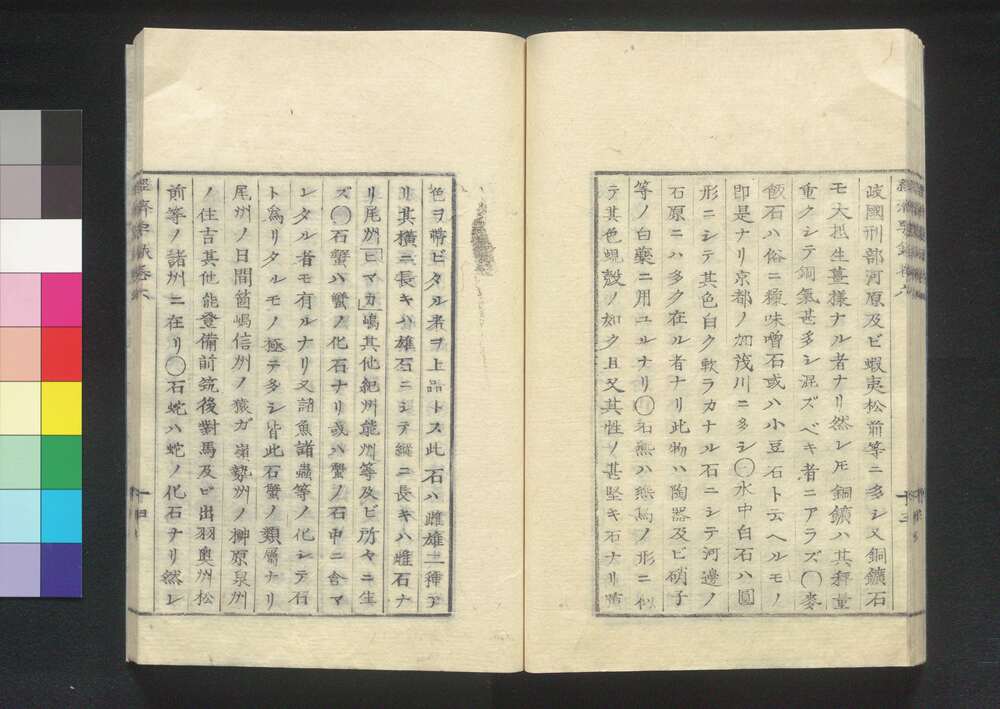 岐國刑部河原及ビ蝦夷松前等ニ多シ又銅鑛石
モ大抵生薑樣ナル者ナリ然レ𪜈銅鑛ハ其秤量
重クシテ銅氣甚多シ混ズベキ者ニアラズ〇麥
飯石ハ俗ニ糠味噌石或ハ小豆石ト云ヘルモノ
即是ナリ京都ノ加茂川ニ多シ〇水中白石ハ圓
形ニシテ其色白ク軟ラカナル石ニシテ河邊ノ
石原ニハ多ク在ル者ナリ此物ハ陶器及ビ硝子
等ノ白藥ニ用ユルナリ〇石燕ハ燕ノ形ニ似
テ其色蜆殼ノ如ク且又其性ノ甚堅キ石ナリ
色ヲ帶ビタル者ヲ上品トス此石ハ雌雄二種ア
リ其橫ニ長キハ雄石ニシテ縱ニ長キハ雌石ナ
リ尾州ヒマカ嶋其他紀州能州等及ビ所々ニ生
ズ〇石蟹ハ蟹ノ化石ナリ或ハ蟹ノ石中ニ含マ
レタル者モ有ルナリ又諸魚諸蟲等ノ化シテ石
ト爲リタルモノ極テ多シ皆此石蟹ノ類屬ナリ
尾州ノ日間箇嶋信州ノ猿ガ嶺勢州ノ榊原泉州
ノ住吉其他能登備前筑後對馬及ビ出羽奧州松
前等ノ諸州ニ在リ〇石蛇ハ蛇ノ化石ナリ然レ
十三
十四